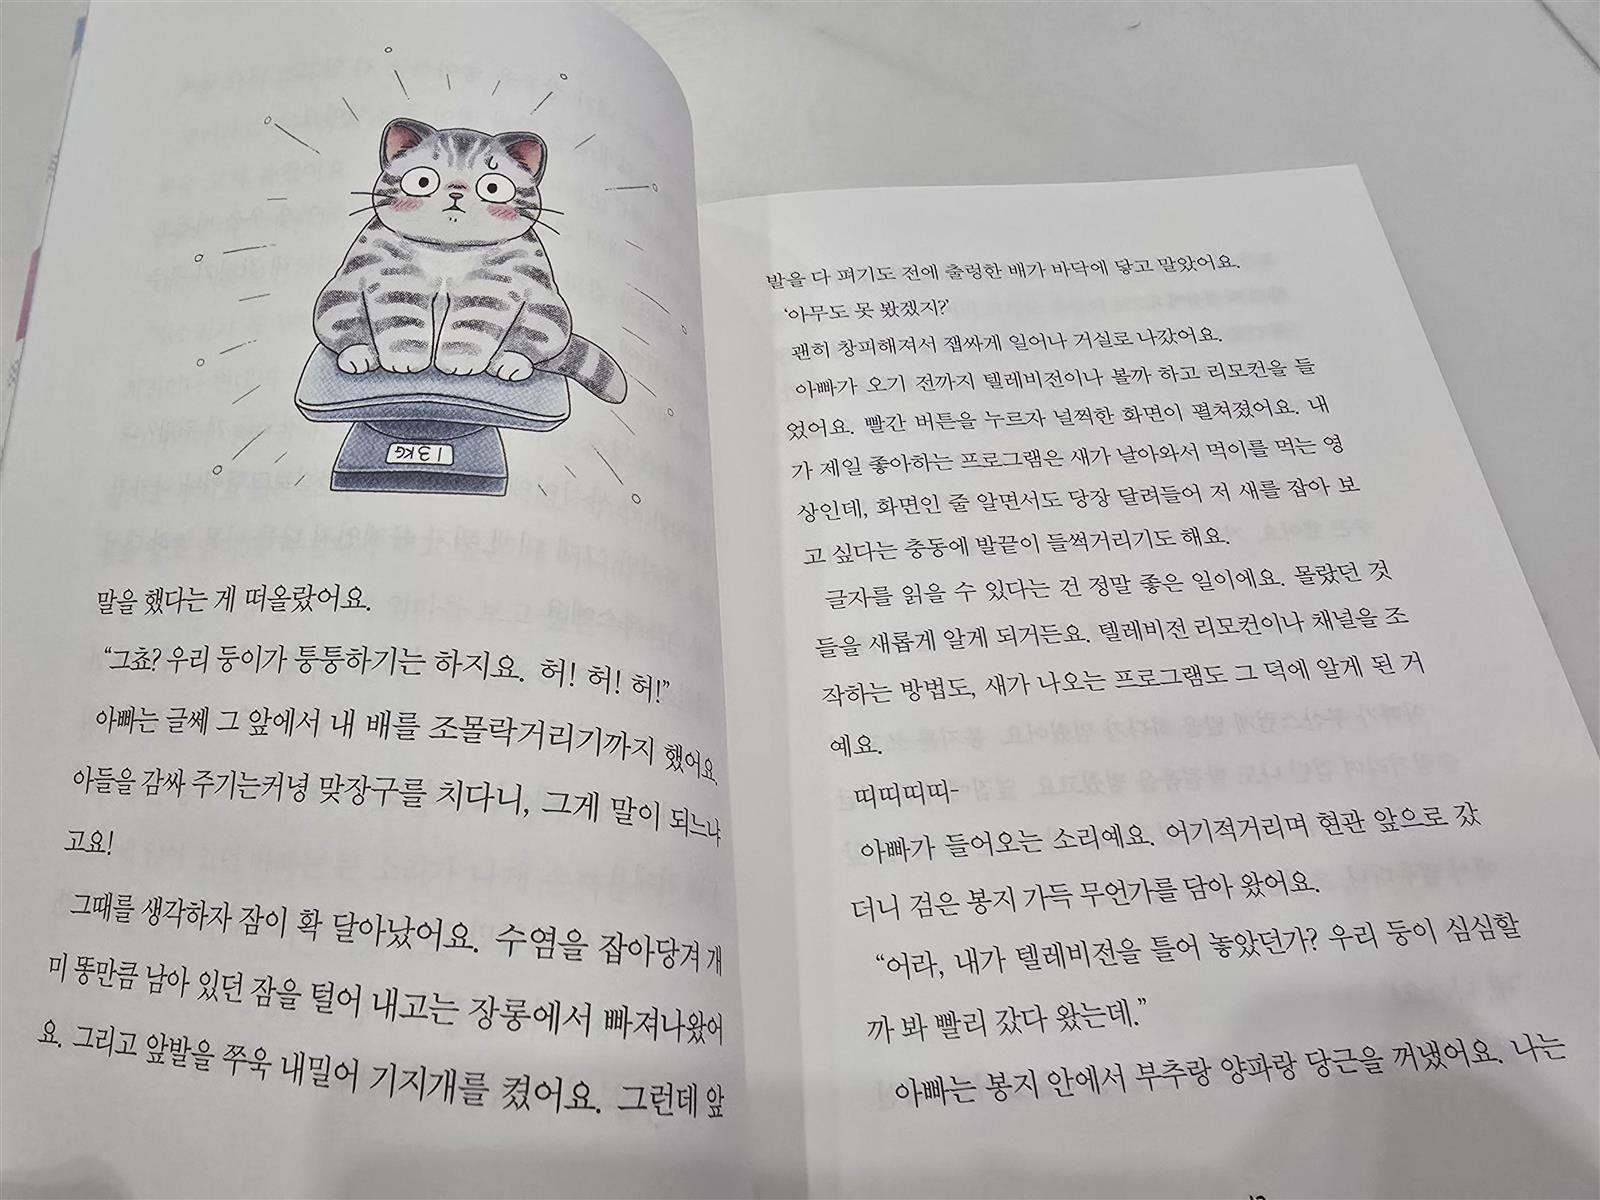 13KG
말을 했다는 게 떠올랐어요.
“그쵸? 우리 둥이가 퉁퉁하기는 하지요. 허! 허! 허!”
아빠는 글쎄 그 앞에서 내 배를 조몰락거리기까지 했어요.
아들을 감싸 주기는커녕 맞장구를 치다니, 그게 말이 되느냐
고요!
그때를 생각하자 잠이 확 달아났어요. 수염을 잡아당겨 개
미 똥만큼 남아 있던 잠을 털어 내고는 장롱에서 빠져나왔어
요. 그리고 앞발을 쭈욱 내밀어 기지개를 켰어요. 그런데 앞
발을 다 펴기도 전에 출렁한 배가 바닥에 닿고 말았어요.
‘아무도 못 봤겠지?’
괜히 창피해져서 잽싸게 일어나 거실로 나갔어요.
아빠가 오기 전까지 텔레비전이나 볼까 하고 리모컨을 들
었어요. 빨간 버튼을 누르자 널찍한 화면이 펼쳐졌어요. 내
가 제일 좋아하는 프로그램은 새가 날아와서 먹이를 먹는 영
상인데, 화면인 줄 알면서도 당장 달려들어 저 새를 잡아 보
고 싶다는 충동에 발끝이 들썩거리기도 해요.
글자를 읽을 수 있다는 건 정말 좋은 일이에요. 몰랐던 것
들을 새롭게 알게 되거든요. 텔레비전 리모컨이나 채널을 조
작하는 방법도, 새가 나오는 프로그램도 그 덕에 알게 된 거
예요.
띠띠띠띠-
아빠가 들어오는 소리예요. 어기적거리며 현관 앞으로 갔
더니 검은 봉지 가득 무언가를 담아 왔어요.
“어라, 내가 텔레비전을 틀어 놓았던가? 우리 둥이 심심할
까 봐 빨리 갔다 왔는데.”
아빠는 봉지 안에서 부추랑 양파랑 당근을 꺼냈어요. 나는